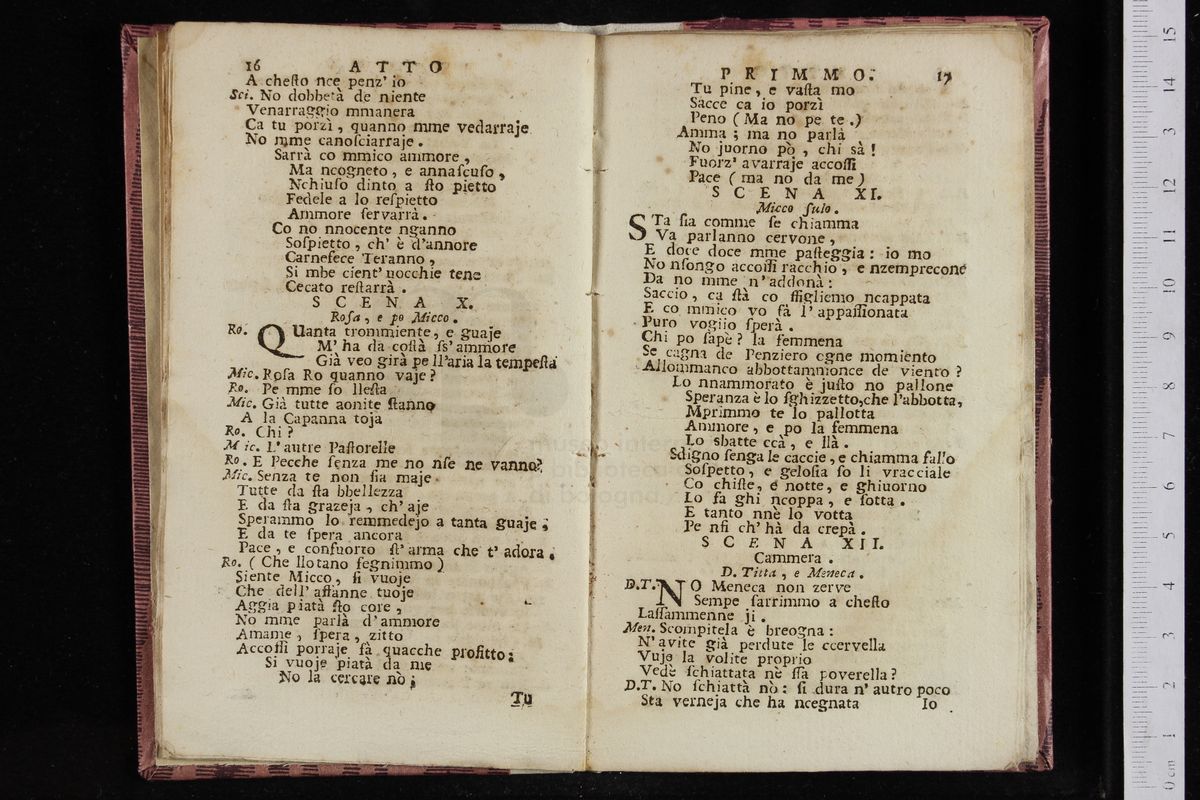 16 ATTO
A chesto nce penz' io
Sci. No dobbetà de niente
Venarraggio mmanera
Ca tu porzì, quanno mme vedarraje
No mme canosciarraje.
Sarrà co mmico ammore,
Ma ncogneto, e annascuso,
Nchiuso dinto a sto pietto
Fedele a lo respietto
Ammore servarrà.
Co no nnocente nganno
Sospietto, ch' è d'annore
Carnefece Teranno,
Si mbe cient' uocchie tene
Cecato restarrà.
SCENA X.
Rosa, e po Micco.
Ro. QUanta trommiente, e guaje
M' ha da costà ss' ammore
Già veo girà pe ll'aria la tempesta
Mic. Rosa Ro quanno vaje?
Ro. Pe mme so llesta
Mic. Già tutte aonite stanno
A la Capanna toja
Ro. Chi?
Mic. L'autre Pastorelle
Ro. E Pecche senza me no nse ne vanno?
Mic. Senza te non sia maje
Tutte da sta bbellezza
E da sta grazeja, ch' aje
Sperammo lo remmedejo a tanta guaje;
E da te spera ancora
Pace, e confuorto st' arma che t' adora.
Ro. (Che llotano segnimmo)
Siente Micco, si vuoje
Che dell' affanne tuoje
Aggia piatà sto core,
No mme parlà d'ammore
Amame, spera, zitto
Accossì porraje fà quacche profitto:
Si vuoje piatà da me
No la cercare nò;
Tu
PRIMMO. 17
Tu pine, e vasta mo
Sacce ca io porzì
Peno (Ma no pe te.)
Amma; ma no parlà
No juorno pò, chi sà!
Fuorz' avarraje accossì
Pace (ma no da me)
SCENA XI.
Micco sulo.
STa sia comme se chiamma
Va parlanno cervone,
E doce doce mme pasteggia: io mo
No nsongo accossì racchio, e nzemprecone
Da no mme n' addonà:
Saccio, ca stà co ffigliemo ncappata
E co mmico vo fà l' appassionata
Puro voglio sperà.
Chi po sapè? la femmena
Se cagna de Penziero ogne momiento
Allommanco abbottammonce de viento?
Lo nnammorato è justo no pallone
Speranza è lo sghizzetto, che l'abbotta,
Mprimmo te lo pallotta
Ammore, e po la femmena
Lo sbatte ccà, e llà.
Sdigno senga le caccie, e chiamma fallo
Sospetto, e gelosia so li vracciale
Co chiste, e notte, e ghiuorno
Lo fa ghi ncoppa, e sotta.
E tanto nnè lo votta
Pe nfi ch' hà da crepà.
SCENA XII.
Cammera.
D. Titta, e Meneca.
D.T. NO Meneca non zerve
Sempe sarrimmo a chesto
Lassammenne ji.
Men. Scompitela è breogna:
N' avite già perdute le ccervella
Vuje la volite proprio
Vedè schiattata nè ssa poverella?
D.T. No schiattà nò: si dura n' autro poco
Sta verneja che ha ncegnata
Io